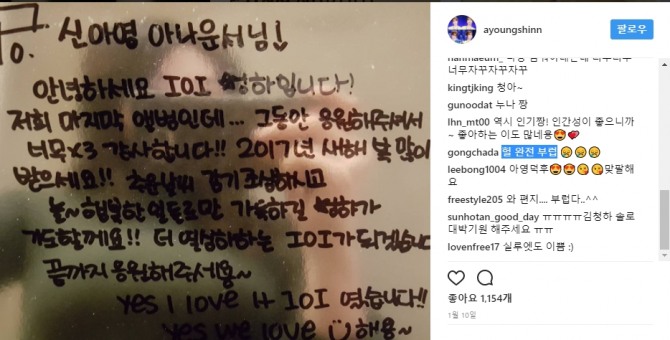 To. 신아영 아나운서님!
안녕하세요 IOI 청하입니다!
저희 마지막 앨범인데... 그동안 응원해주셔서
너무x3 감사합니다!! 2017년 새해 복 많이
받으세요!! 추운날씨 감기 조심하시고
늘~ 행복한 일들로만 가득하길 청하가
기도할께요!! 더 열심히하는 IOI가 되겠습니다
끝까지 응원해주세용~
yes I love it IOI 였습니다!!
yes we love 해용~
ayoungshinn
팔로우
너무자꾸자꾸자꾸
kingtjking 청아~
gunoodat 누나 짱
lhn_mt00 역시 인기짱! 인간성이 좋으니까
~ 좋아하는 이도 많네용😍💕
gongchada 헐 완전 부럽😑😑😑
leebong1004 아영덕후😍😍😋😋맞팔해
요
freestyle205 와 편지.... 부럽다..^^
sunhotan_good_day ㅠㅠㅠㅠ김청하 솔로
대박기원 해주세요 ㅠㅠ
lovenfree17 실루엣도 이쁨 :)
좋아요 1,154개
1월 10일